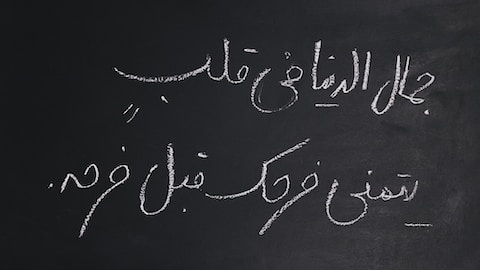 جمال الدنيا في قلبٍ
يتمنى فرحك قبل فرحه.